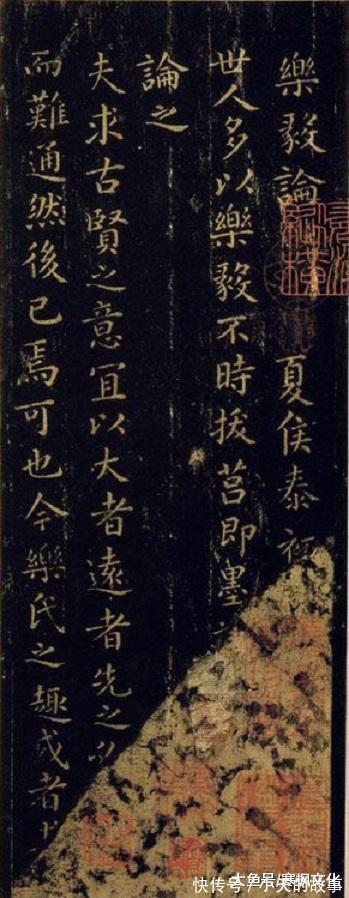 樂毅論 夏侯泰
世人多以樂毅不時拔莒即墨
論之
夫求古賢之意宜以大者遠者先之必
而難通然後已焉可也今樂氏之趣或者
快传号/小天的故事